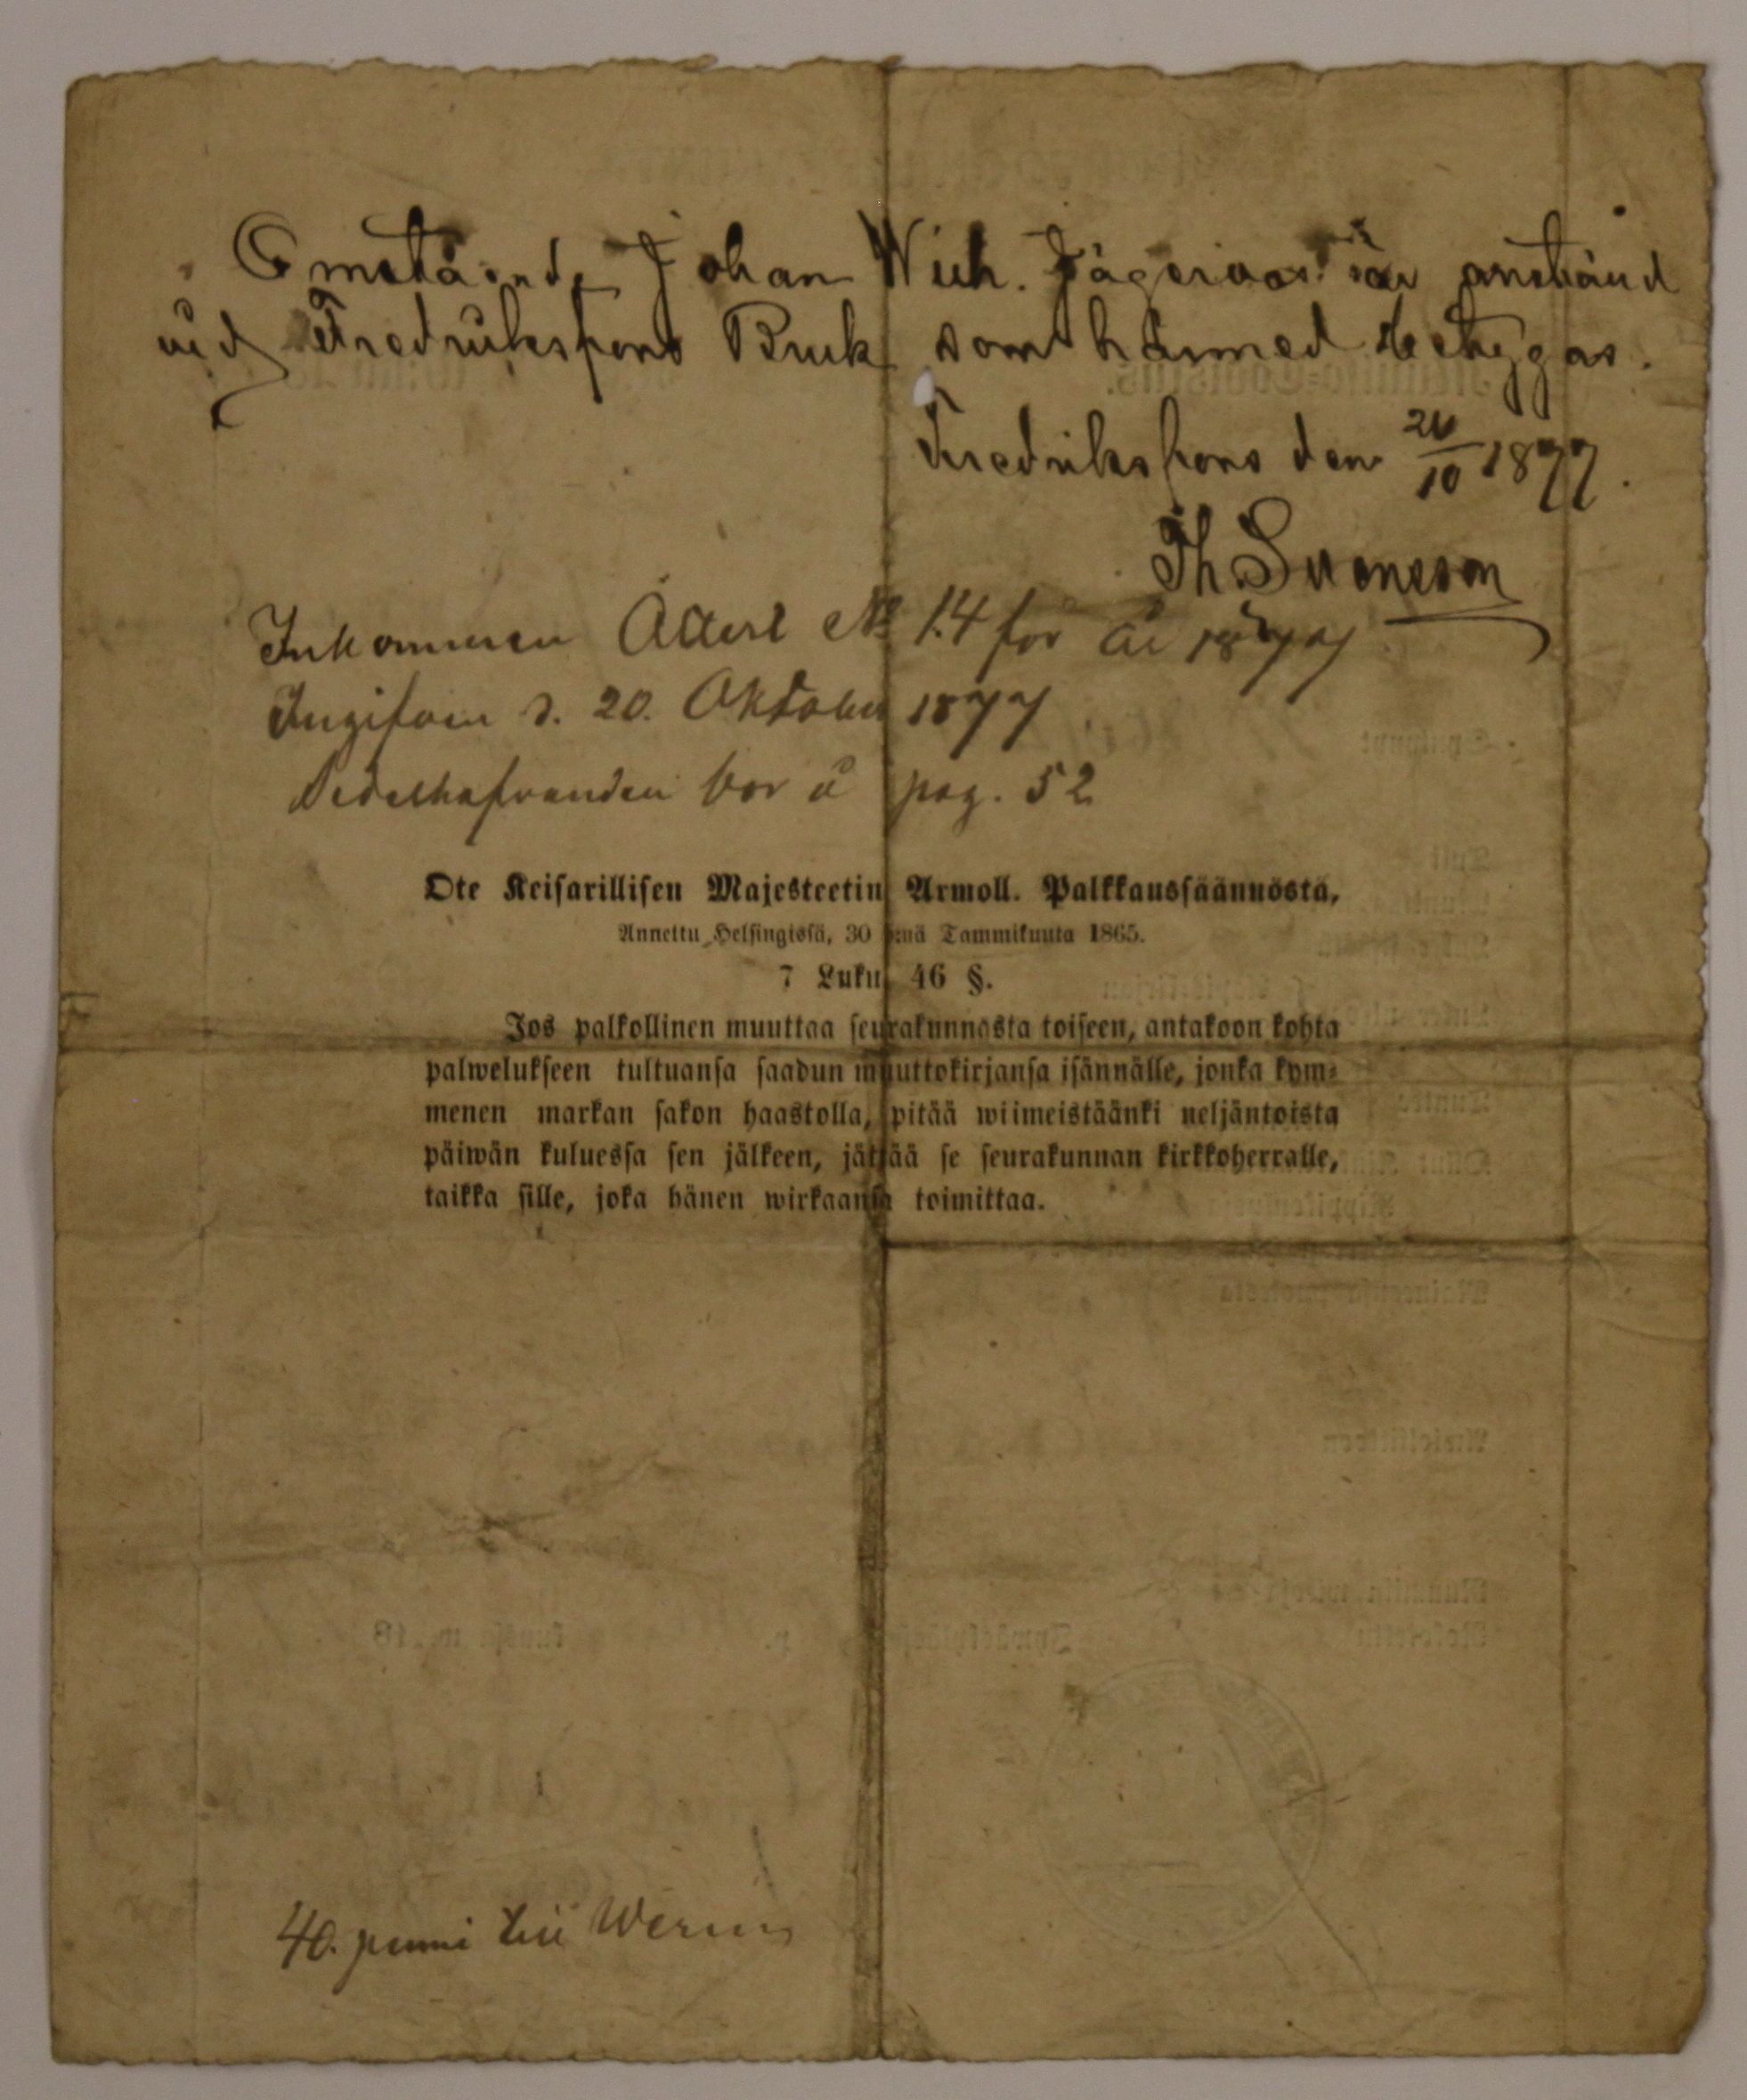 Omstående Johan Wilh. Jägerroos är anstäld
vid Fredriksfors Bruk som härmed betygas.
Fredriksfors den 20/10 1877.
Th Svenson
Inkommen Attest No 14 för år 1877
Ingifven d. 20. Oktober 1877
Bedelhafvanden bor å pag. 52
Ote Keisarillisen Majesteetin Armoll. Palkkaussäännöstä,
Annettu Helsingissä, 30 p:nä Tammikuuta 1865.
7 Luku 46 §.
Jos palkollinen muuttaa seurakunnasta toiseen, antakoon kohta
palwelukseen tultuansa saadun muuttokirjansa isännälle, jonka kym-
menen markan sakon haastolla, pitää wiimeistäänki neljäntoista
päiwän kuluessa sen jälkeen, jättää se seurakunnan kirkkoherralle,
taikka sille, joka hänen wirkaansa toimittaa.
40. penni till